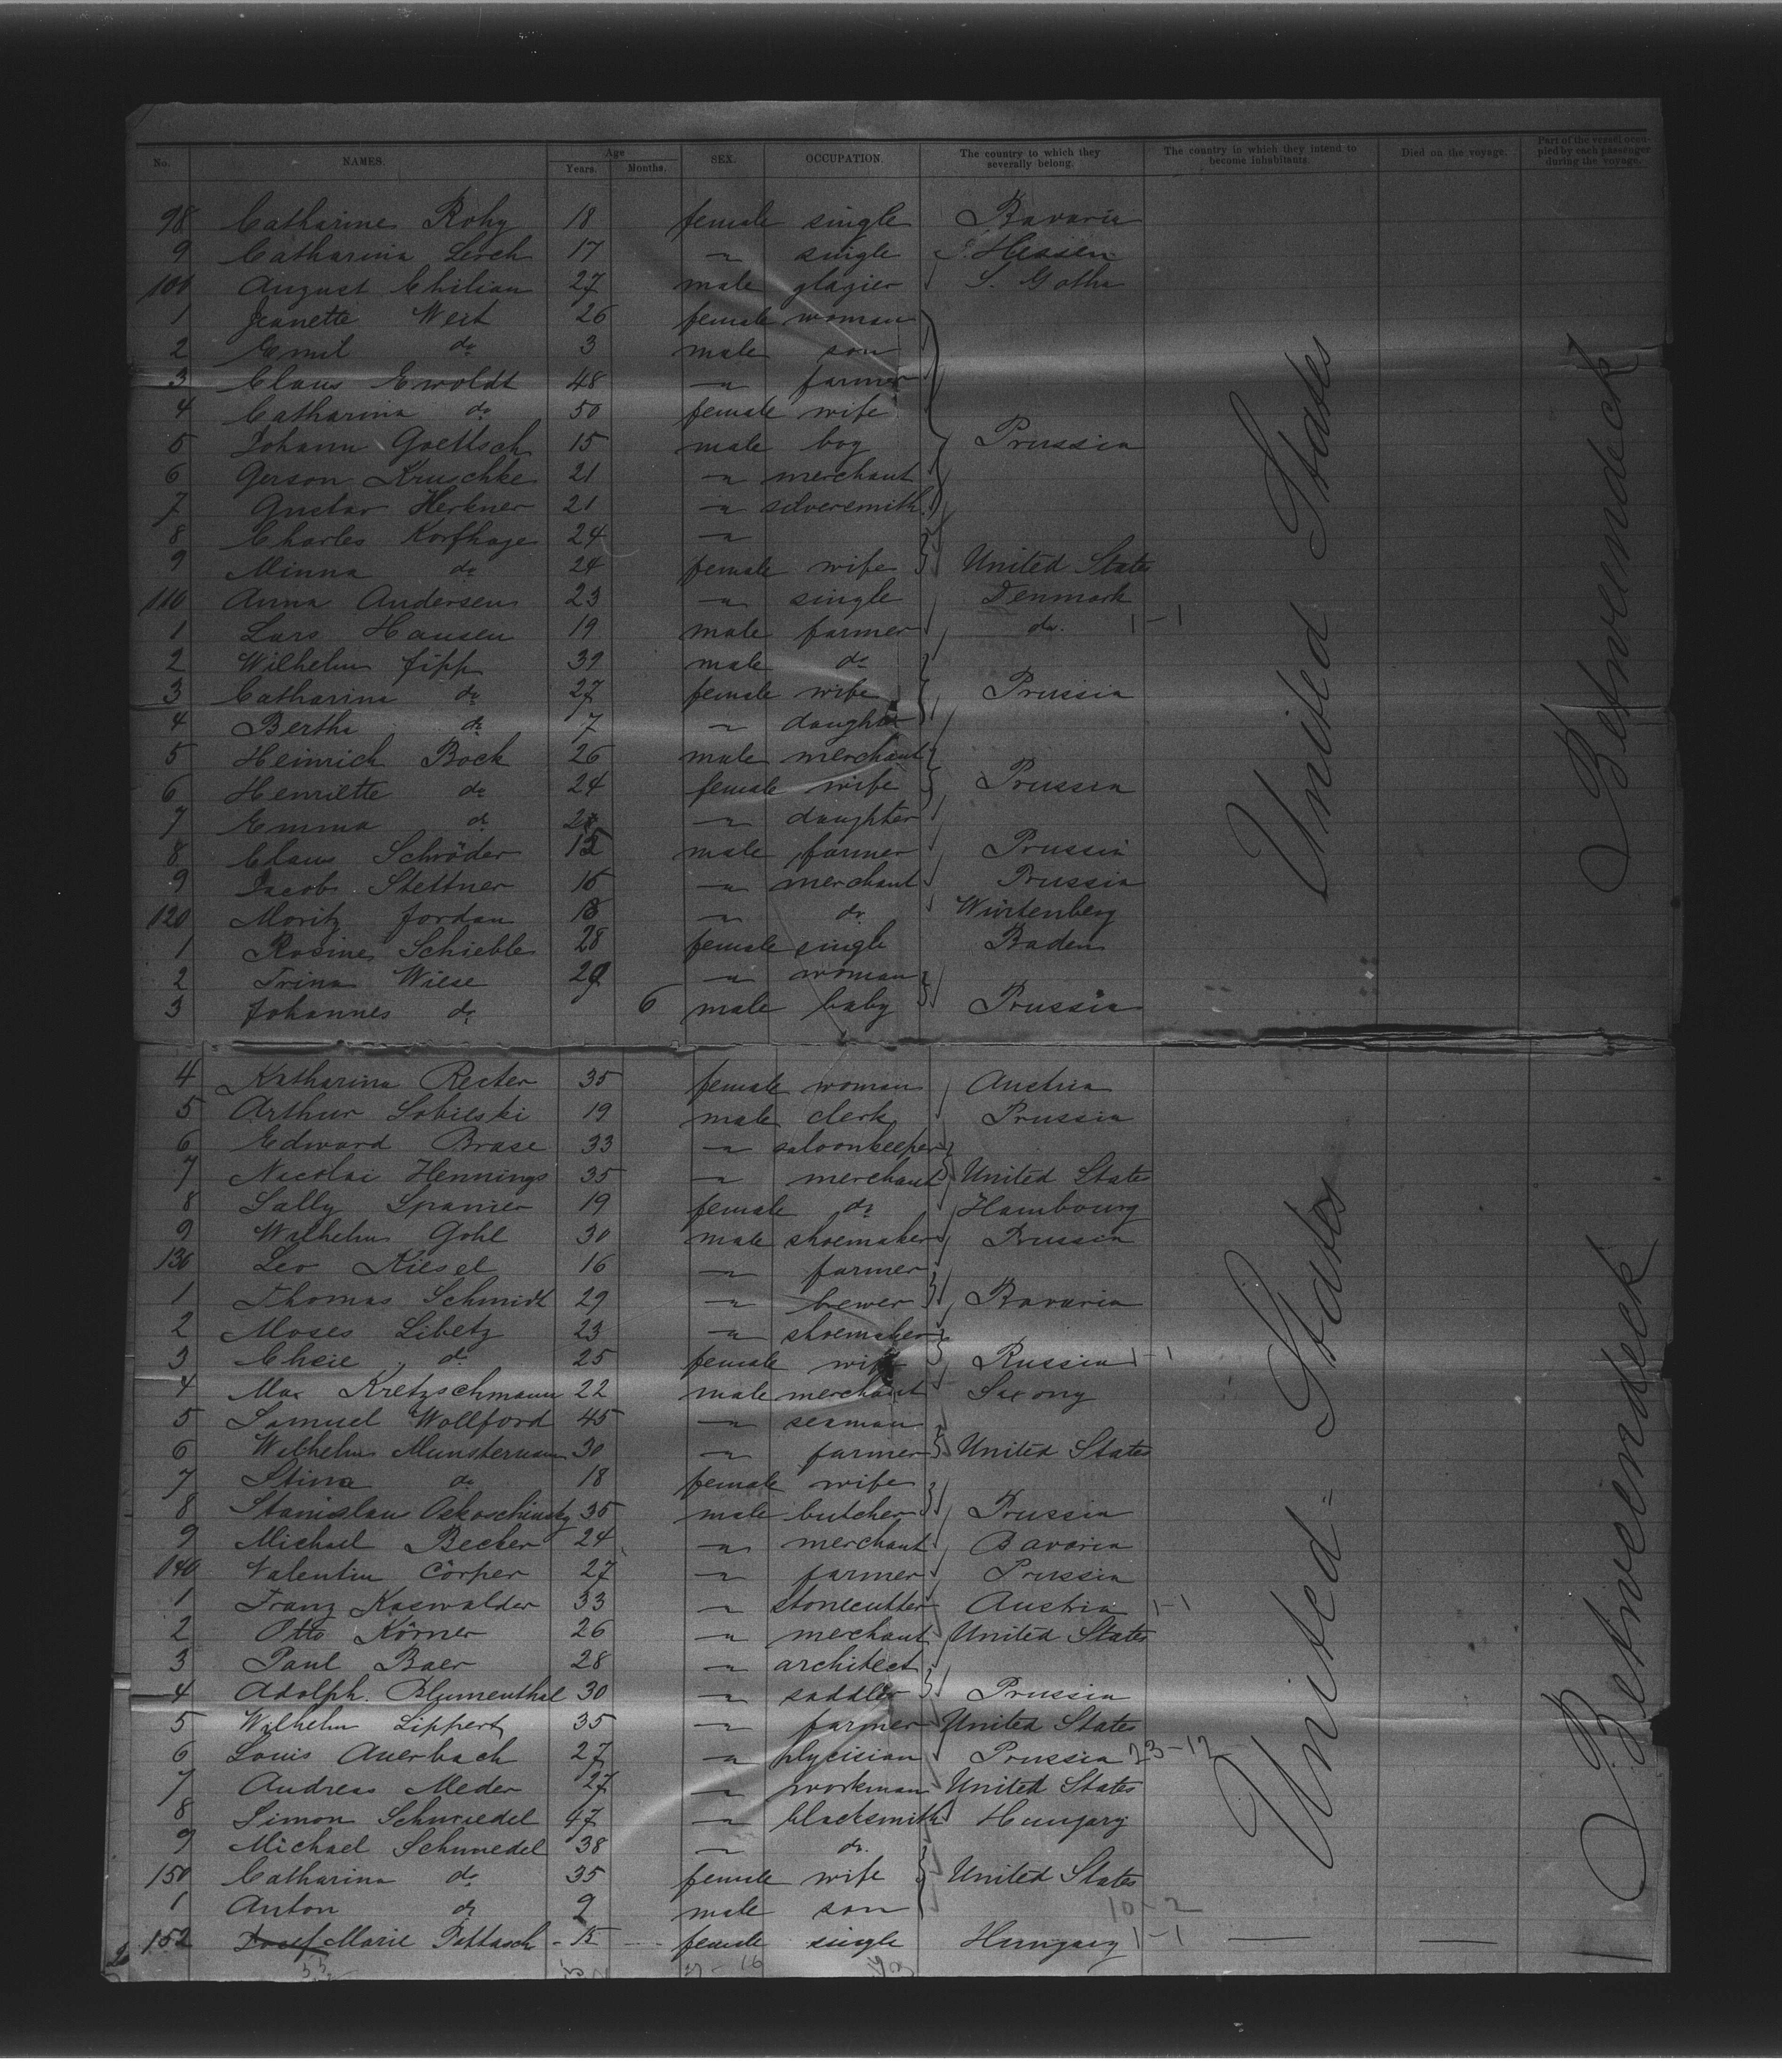 No. NAMES. Age Years. Months. SEX. OCCUPATION. The country to which they severally belong. The country in which they intend to become inhabitants. Died on the voyage. Part of the vessel occupied by each passenger during the voyage.
98 Catharine Rohy 18 female single Bavaria
9 Catharina Lerch 17 " single Hessen
100 August Chilian 27 male glazier S. Gotha
1 Jeanette Weit 26 female woman
2 Emil do 3 male son
3 Claus Ewoldt 48 " farmer
4 Catharina do 50 female wife
5 Johann Goettsch 15 male boy Prussia
6 Gerson Kruschke 21 " merchant
7 Gustav Herkner 21 " silversmith
8 Charles Korfhage 24 "
9 Minna do 24 female wife United States
110 Anna Andersen 23 " single Denmark
1 Lars Hansen 19 male farmer do. 1-1
2 Wilhelm Jipp 39 male do
3 Catharina do 27 female wife Prussia
4 Bertha do 7 " daughter
5 Heinrich Bock 26 male merchant
6 Henriette do 24 female wife Prussia
7 Emma do " daughter
8 Claus Schröder male farmer Prussia
9 Jacob Stettner 16 " merchant Prussia
120 Moritz Jordan 18 " do. Würtenberg
1 Rosine Schieble 28 female single Baden
2 Trina Wiese 29 " woman
3 Johannes do 6 male baby Prussia
United States
Betweendeck
4 Katharina Recter 35 female woman Austria
5 Arthur Sobieski 19 male clerk Prussia
6 Edward Brase 33 " saloonkeeper
7 Nicolai Hennings 35 " merchant United States
8 Sally Spanier 19 female do Hambourg
9 Wilhelm Gohl 30 male shoemaker Prussia
130 Leo Kiesel 16 " farmer
1 Thomas Schmidt 29 " brewer Bavaria
2 Moses Libetz 23 " shoemaker
3 Cheie do 25 female wife Russia 1-1
4 Max Kretzschmann 22 male merchant Saxony
5 Samuel Wollford 45 " seaman
6 Wilhelm Munstermann 30 " farmer United States
7 Stina do 18 female wife
8 Stanislaus 35 male butcher Prussia
9 Michael Becker 24 " merchant Bavaria
140 Valentin Cörper 27 " farmer Prussia
1 Franz Kaswalder 33 " stonecutter Austria 1-1
2 Otto Körner 26 " merchant United States
3 Paul Baer 28 " architect
4 Adolph. Blumenthal 30 " saddler Prussia
5 Wilhelm Lippert 35 " farmer United States
6 Louis Auerbach 27 " phycisian Prussia 23-12
7 Andreas Meder 27 " workman United States
8 Simon Schmiedel 47 " blacksmith Hungary
9 Michael Schmiedel 38 " do.
150 Catharina do 35 female wife United States
1 Anton do 2 male son 10-2
152 Josef Marie Pattasch 15 female single Hungary 1-1
United States
Betweendeck